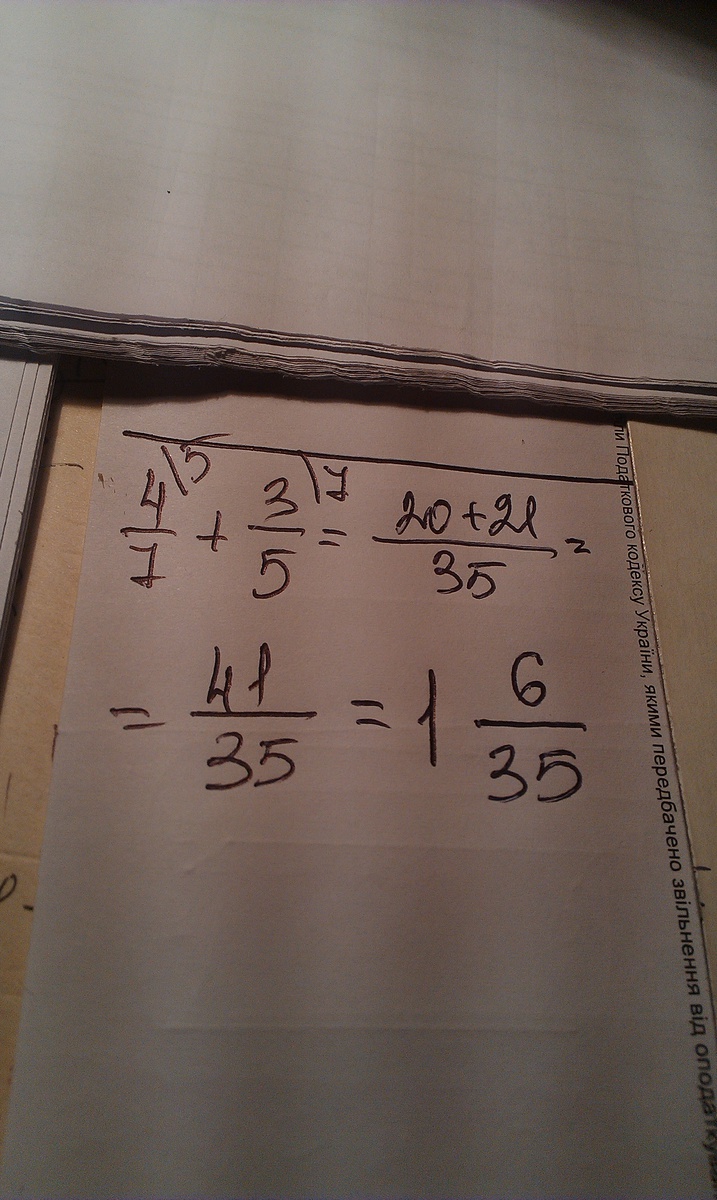 4/7 \5 + 3/5 \7 = 20+21/35 =
= 41/35 = 1 6/35
ли Податкового кодексу України, якими передбачено звільнення від оподатку